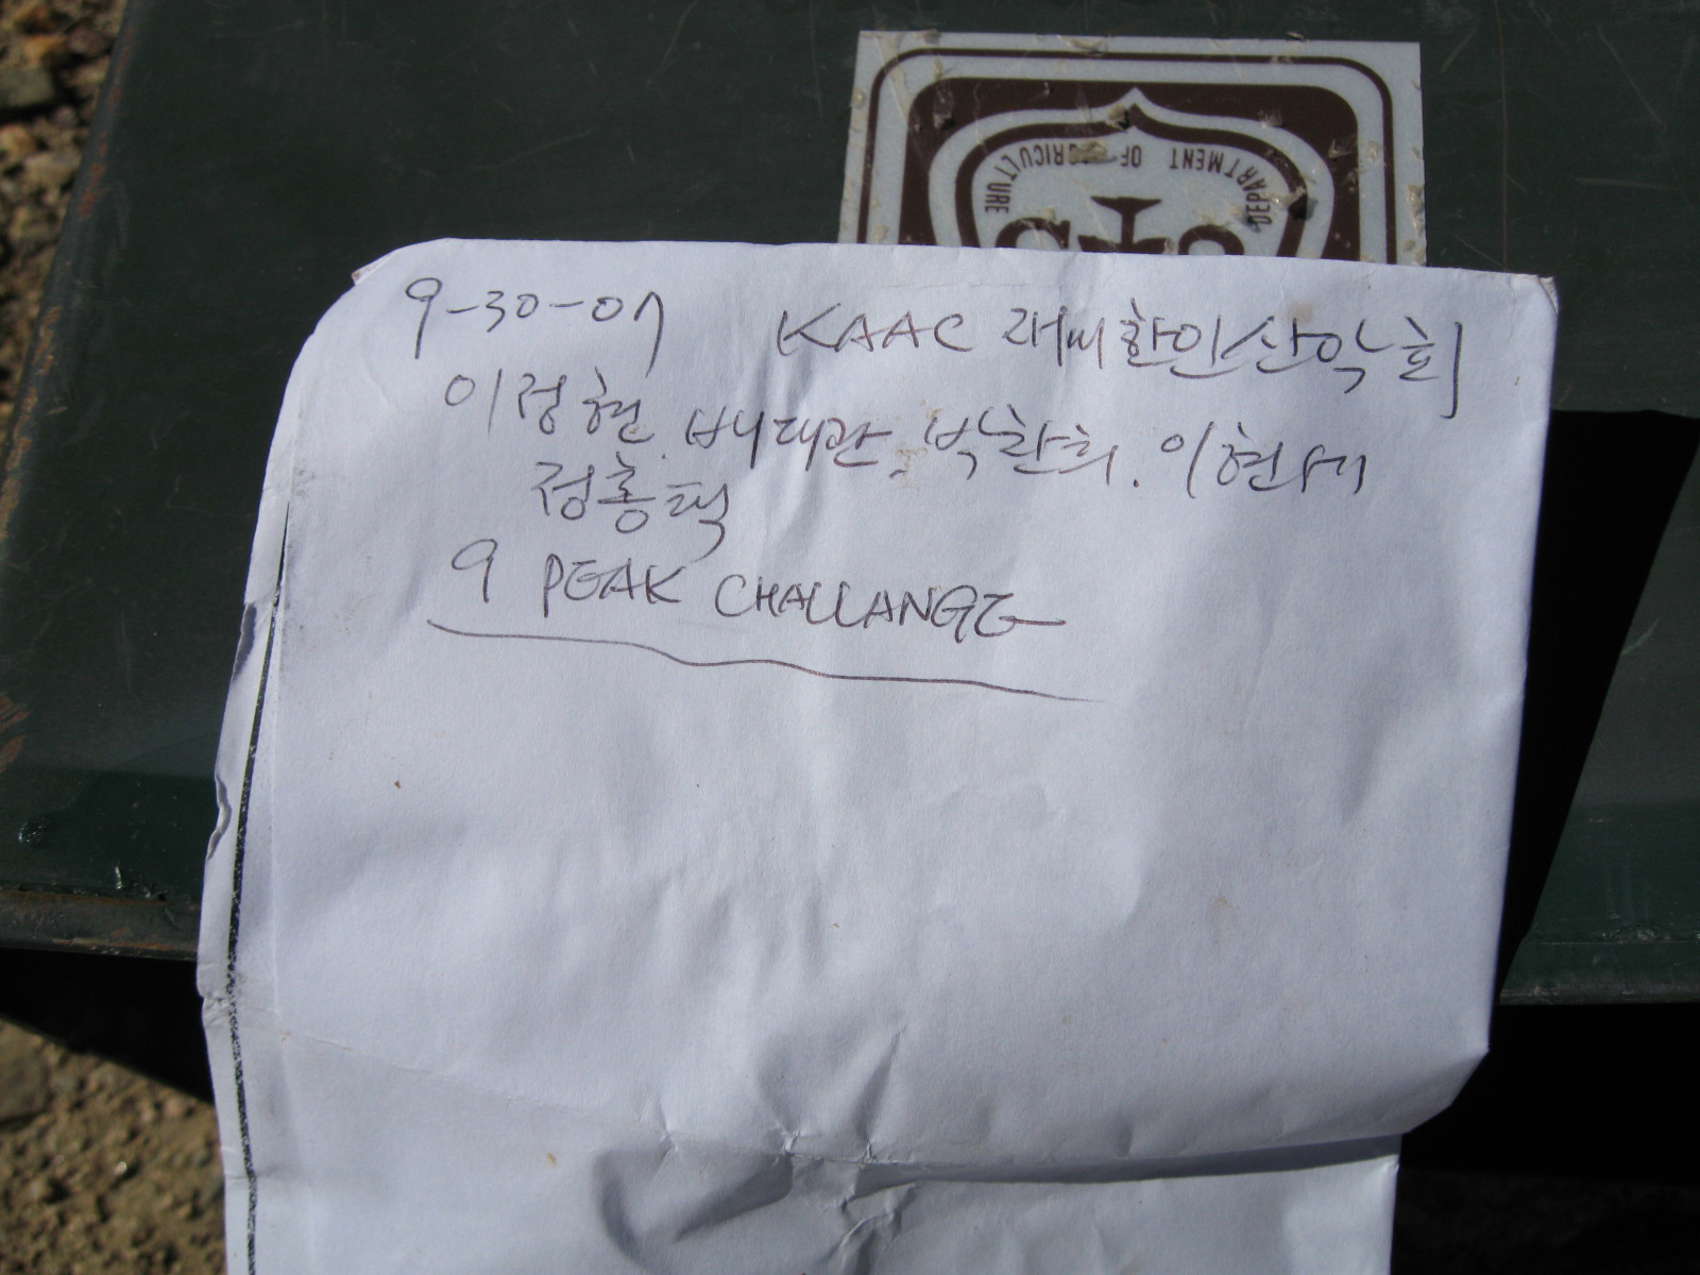 DEPARTMENT OF AGRICULTURE
9-30-07 KAAC 재미한인산악회
이정현. 배대관. 박환희. 이현세
정홍택
9 PEAK CHALLANGE